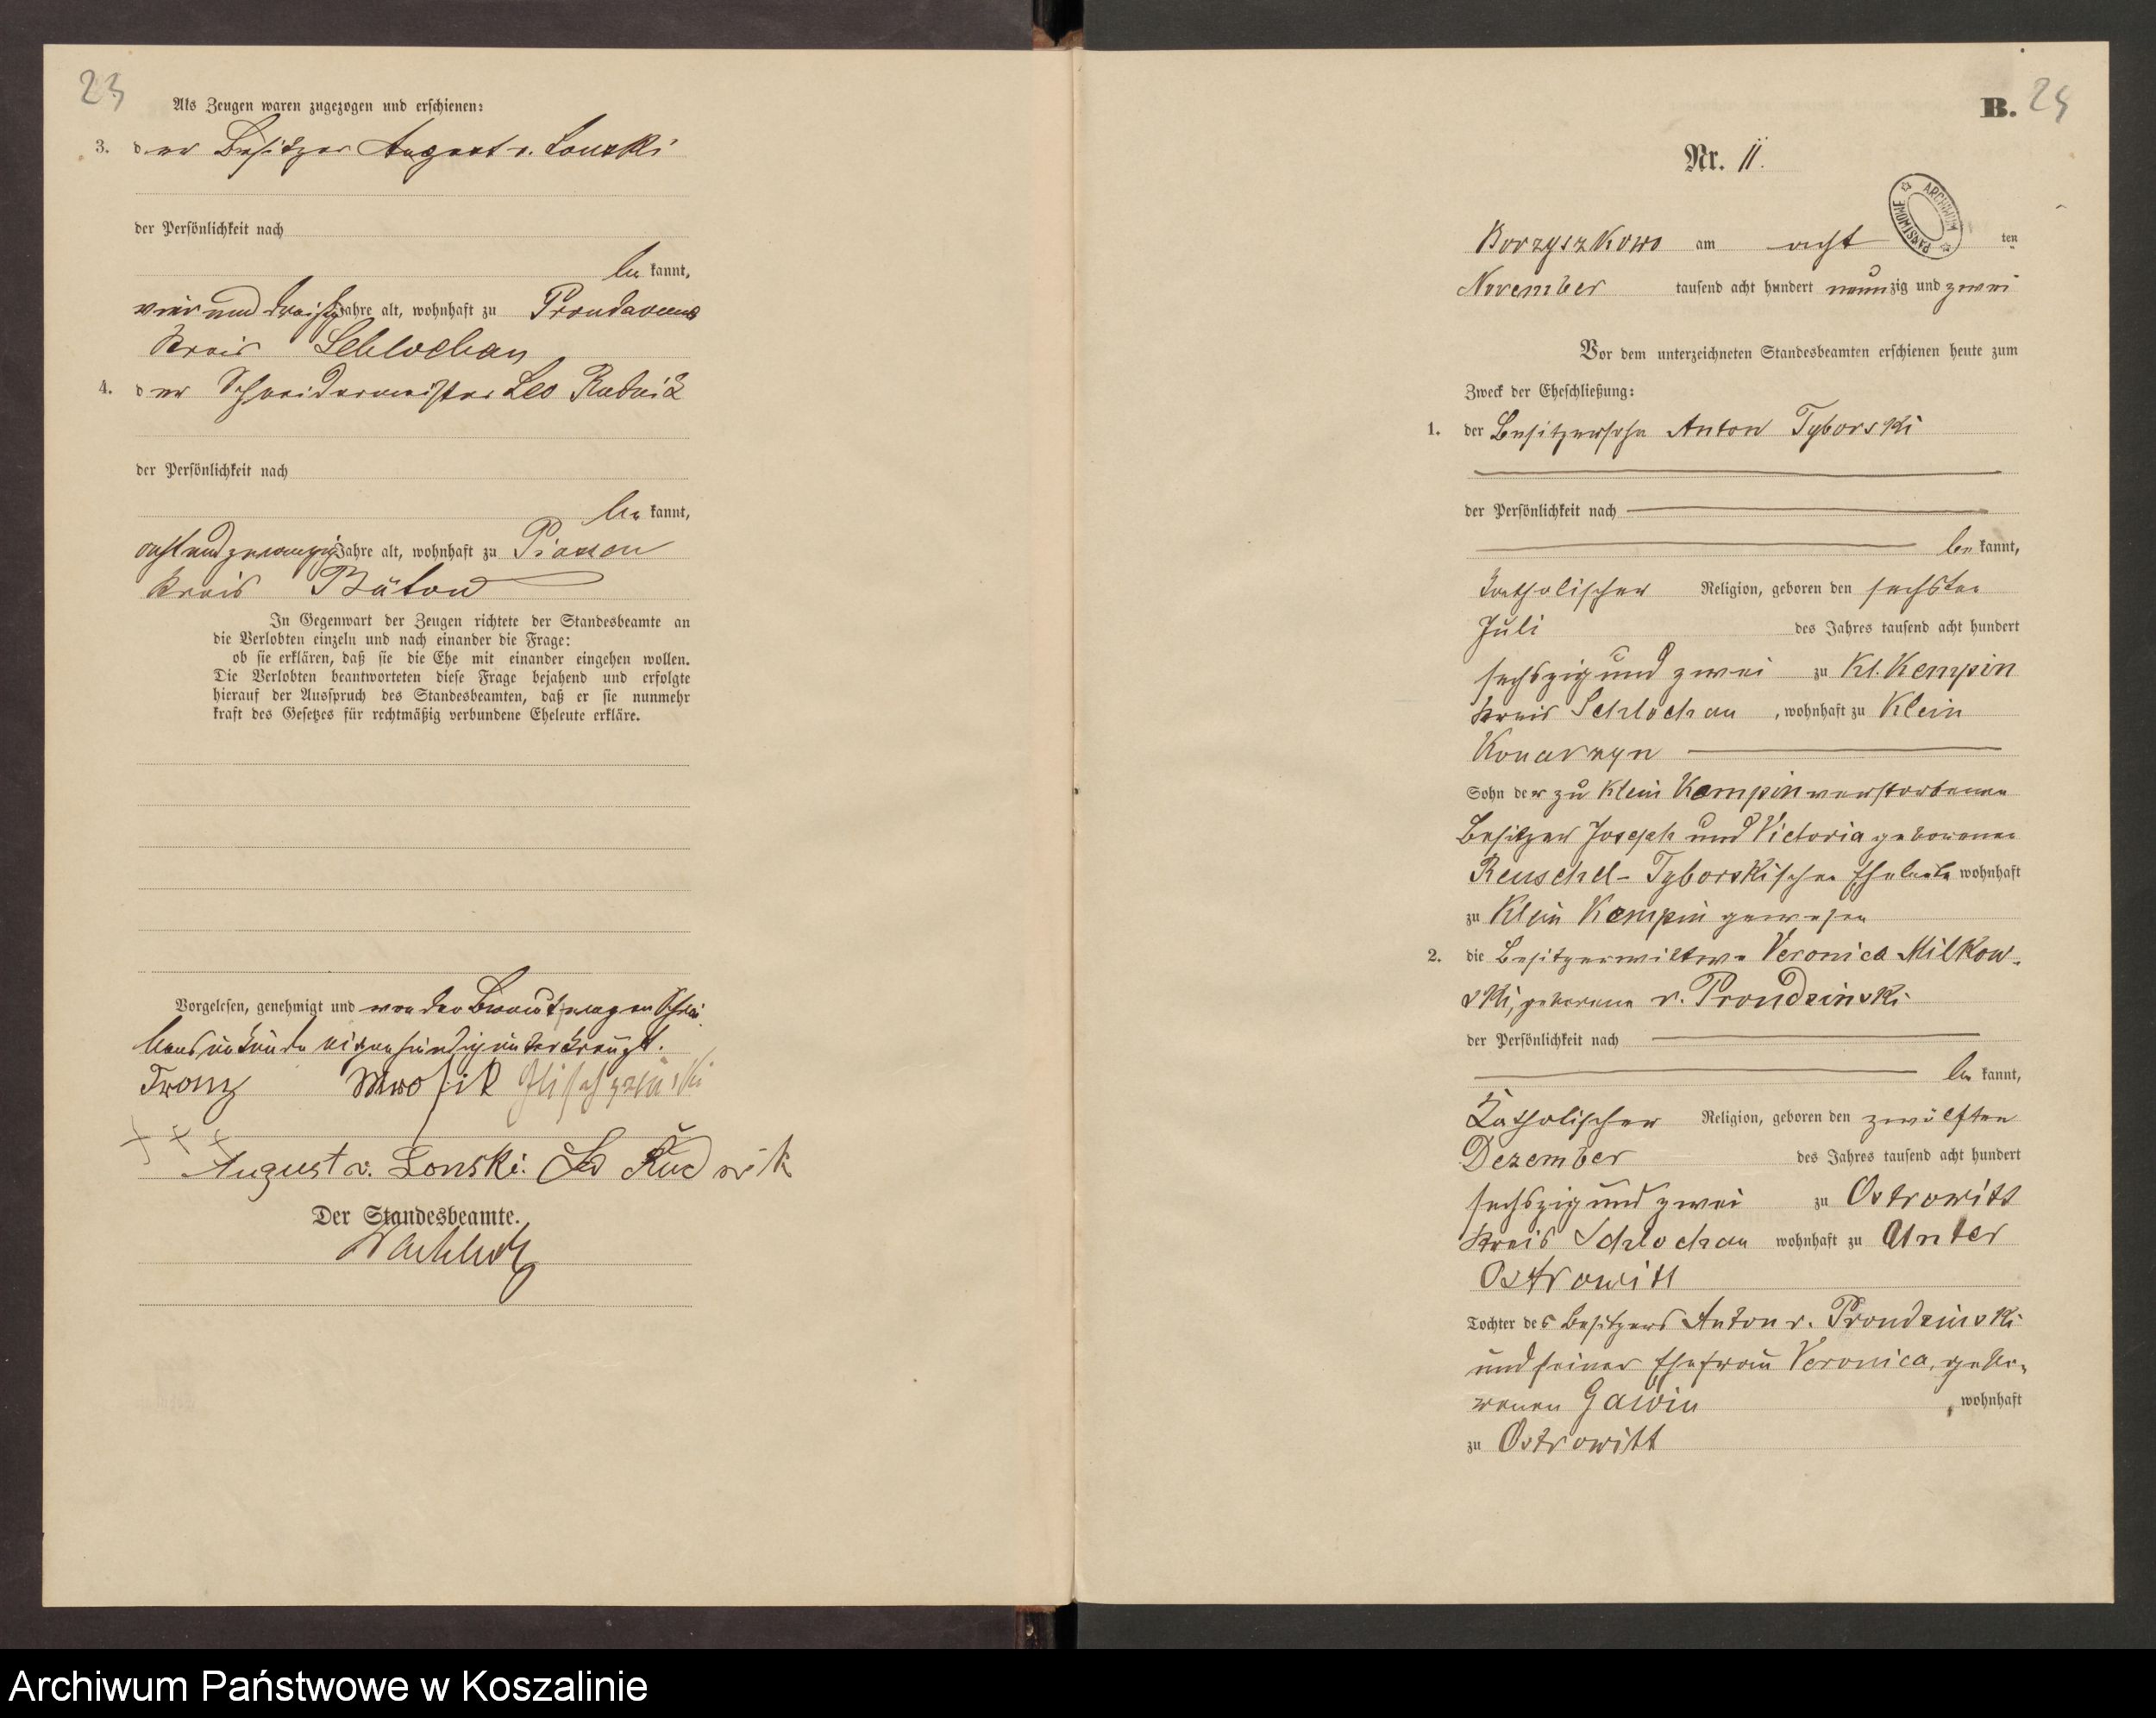 23
Als Zeugen waren zugezogen und erschienen:
3. der Besitzer August v. Lonski
der Persönlichkeit nach
be kannt,
vier und dreißig Jahre alt, wohnhaft zu
Kreis Schlochau
4. der Schneidermeister Leo Rudnik
der Persönlichkeit nach
be kannt,
achtundzwanzig Jahre alt, wohnhaft zu
Kreis Bütow
In Gegenwart der Zeugen richtete der Standesbeamte an
die Verlobten einzeln und nach einander die Frage:
ob sie erklären, daß sie die Ehe mit einander eingehen wollen.
Die Verlobten beantworteten diese Frage bejahend und erfolgte
hierauf der Ausspruch des Standesbeamten, daß er sie nunmehr
kraft des Gesetzes für rechtmäßig verbundene Eheleute erkläre.
Vorgelesen, genehmigt und von der Braut wegen Schrei-
bensunkunde eigenhändig unterkreuzt.
Franz
+++
August v. Lonski. Leo Rudnik
Der Standesbeamte.
B. 24
Nr. 11.
ARCHIWUM PAŃSTWOWE
Borzyszkowo am acht ten
November tausend acht hundert neunzig und zwei
Vor dem unterzeichneten Standesbeamten erschienen heute zum
Zweck der Eheschließung:
1. der Besitzersohn Anton Tyborski
der Persönlichkeit nach
be kannt,
katholischer Religion, geboren den sechsten
Juli des Jahres tausend acht hundert
sechszig und zwei zu Kl. Kempin
Kreis Schlochau, wohnhaft zu Klein
Konarzyn
Sohn der zu Klein Kempin verstorbenen
Besitzer Joseph und Victoria geborenen
Reuschel- Tyborskischen Eheleute wohnhaft
zu Klein Kempin gewesen
2. die Besitzerwittwe Veronica Milkow-
ski, geborene v. Prondzinski
der Persönlichkeit nach
be kannt,
Katholischer Religion, geboren den zwölften
Dezember des Jahres tausend acht hundert
sechszig und zwei zu Ostrowitt
Kreis Schlochau wohnhaft zu Unter
Ostrowitt
Tochter des Besitzers Anton v. Prondzinski
und seiner Ehefrau Veronica, gebo-
renen Gawin, wohnhaft
zu Ostrowitt
Archiwum Państwowe w Koszalinie